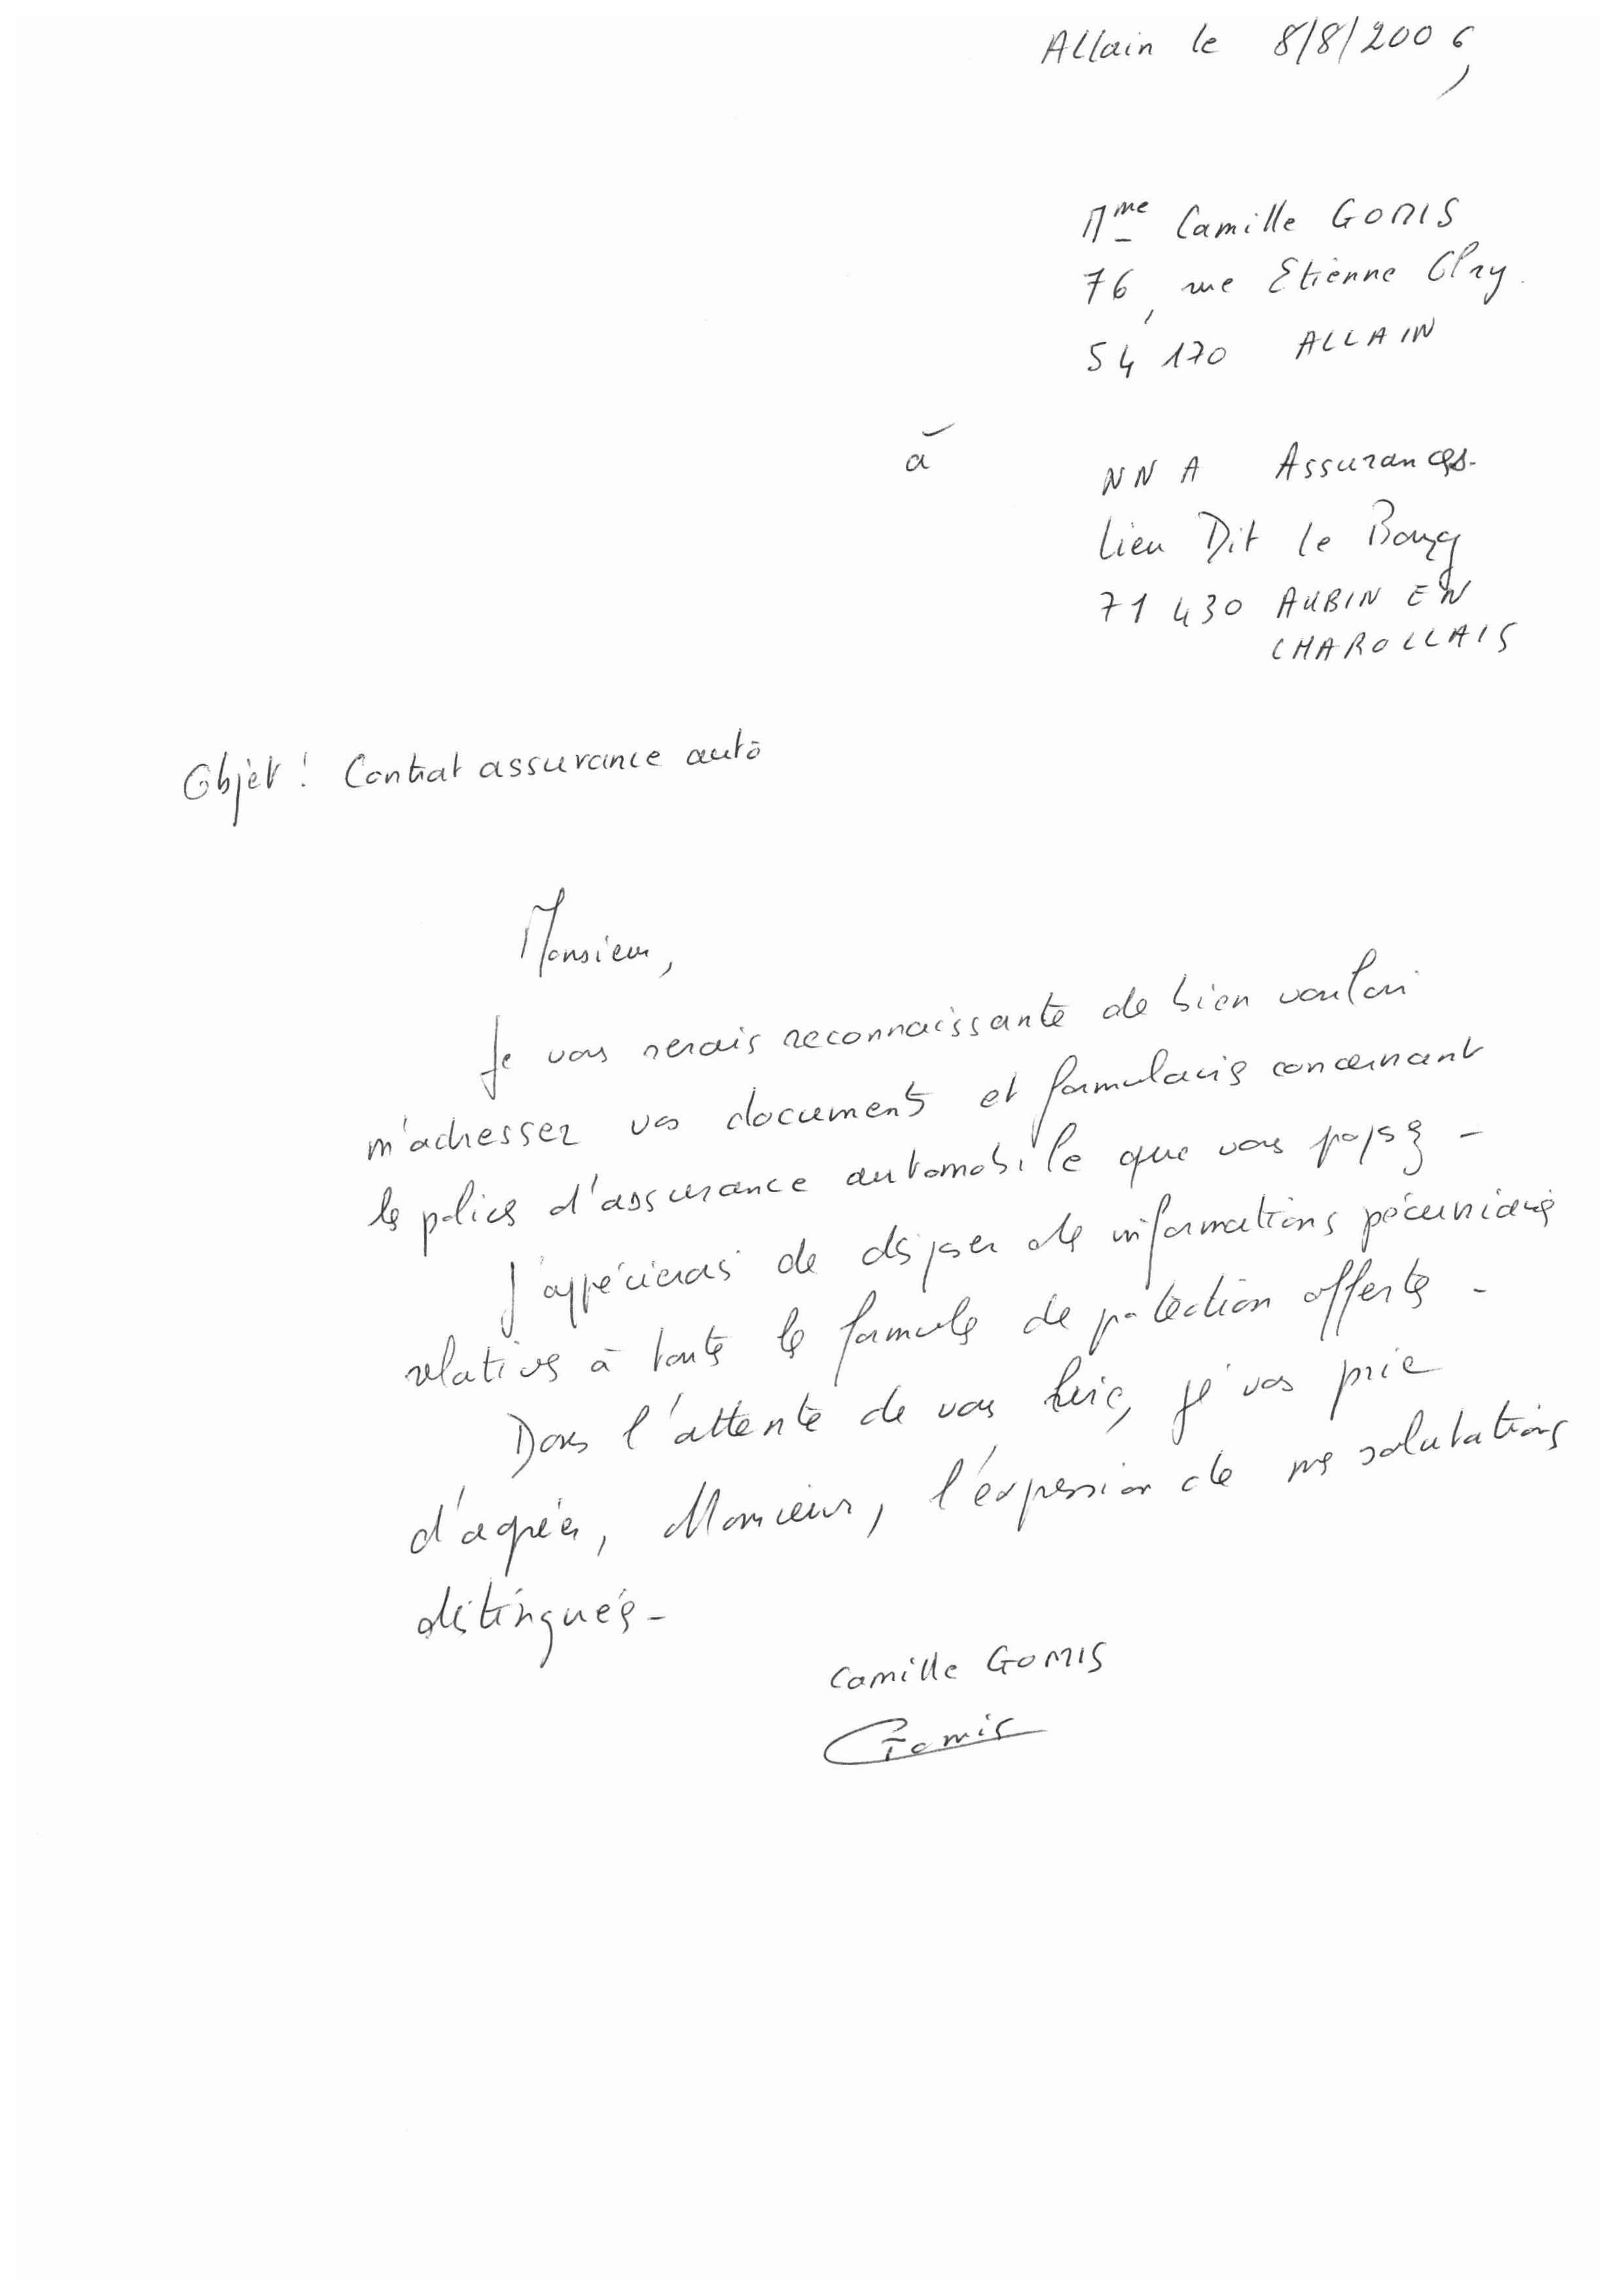 Allain le 8/8/2006,
Mme Camille GOMIS
76, rue Etienne Olry.
54 170 ALLAIN
à
NNA Assurances.
Lieu Dit le Bourg
71 430 AUBIN EN
CHAROLLAIS
Objet : Contrat assurance auto
Monsieur,
Je vous serais reconnaissante de bien vouloir
m'adresser vos documents et formulaires concernant
les polices d'assurance automobile que vous proposez -
J'apprécierais de disposer de informations pécuniaires
relatives à toutes les formules de protection offertes -
Dans l'attente de vous lire, je vous prie
d'agréer, Monsieur, l'expression de mes salutations
distinguées -
Camille GOMIS
Gomis